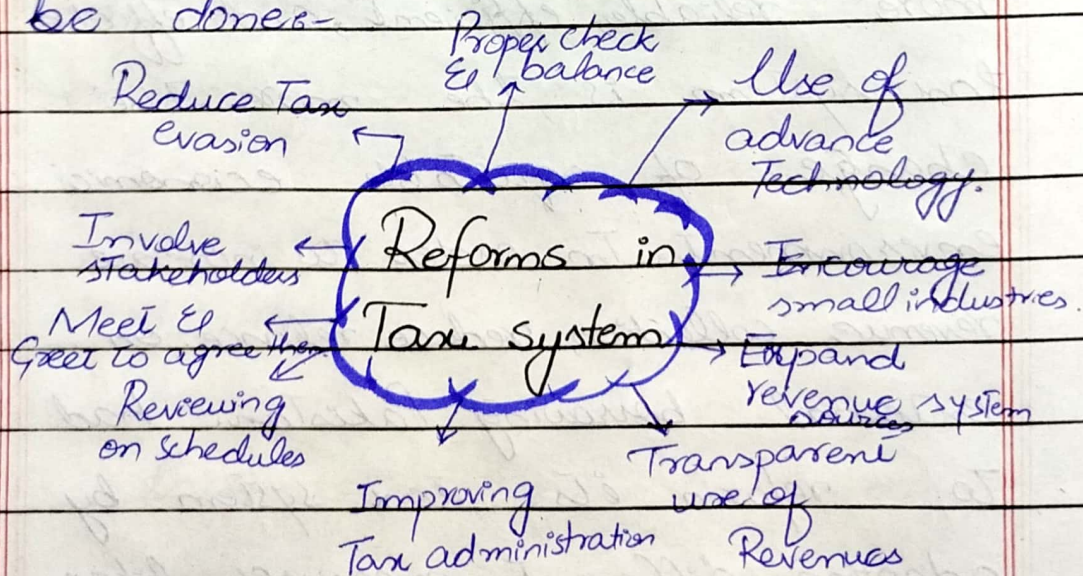 be done:-
Proper check
& balance
Reduce Tax
evasion
Use of
advance
Technology.
Involve
stakeholders
Reforms in
Tax system
Encourage
small industries.
Meet &
Greet to agree them
Expand
revenue system
sources
Reviewing
on schedules
Transparent
use of
Revenues
Improving
Tax administration